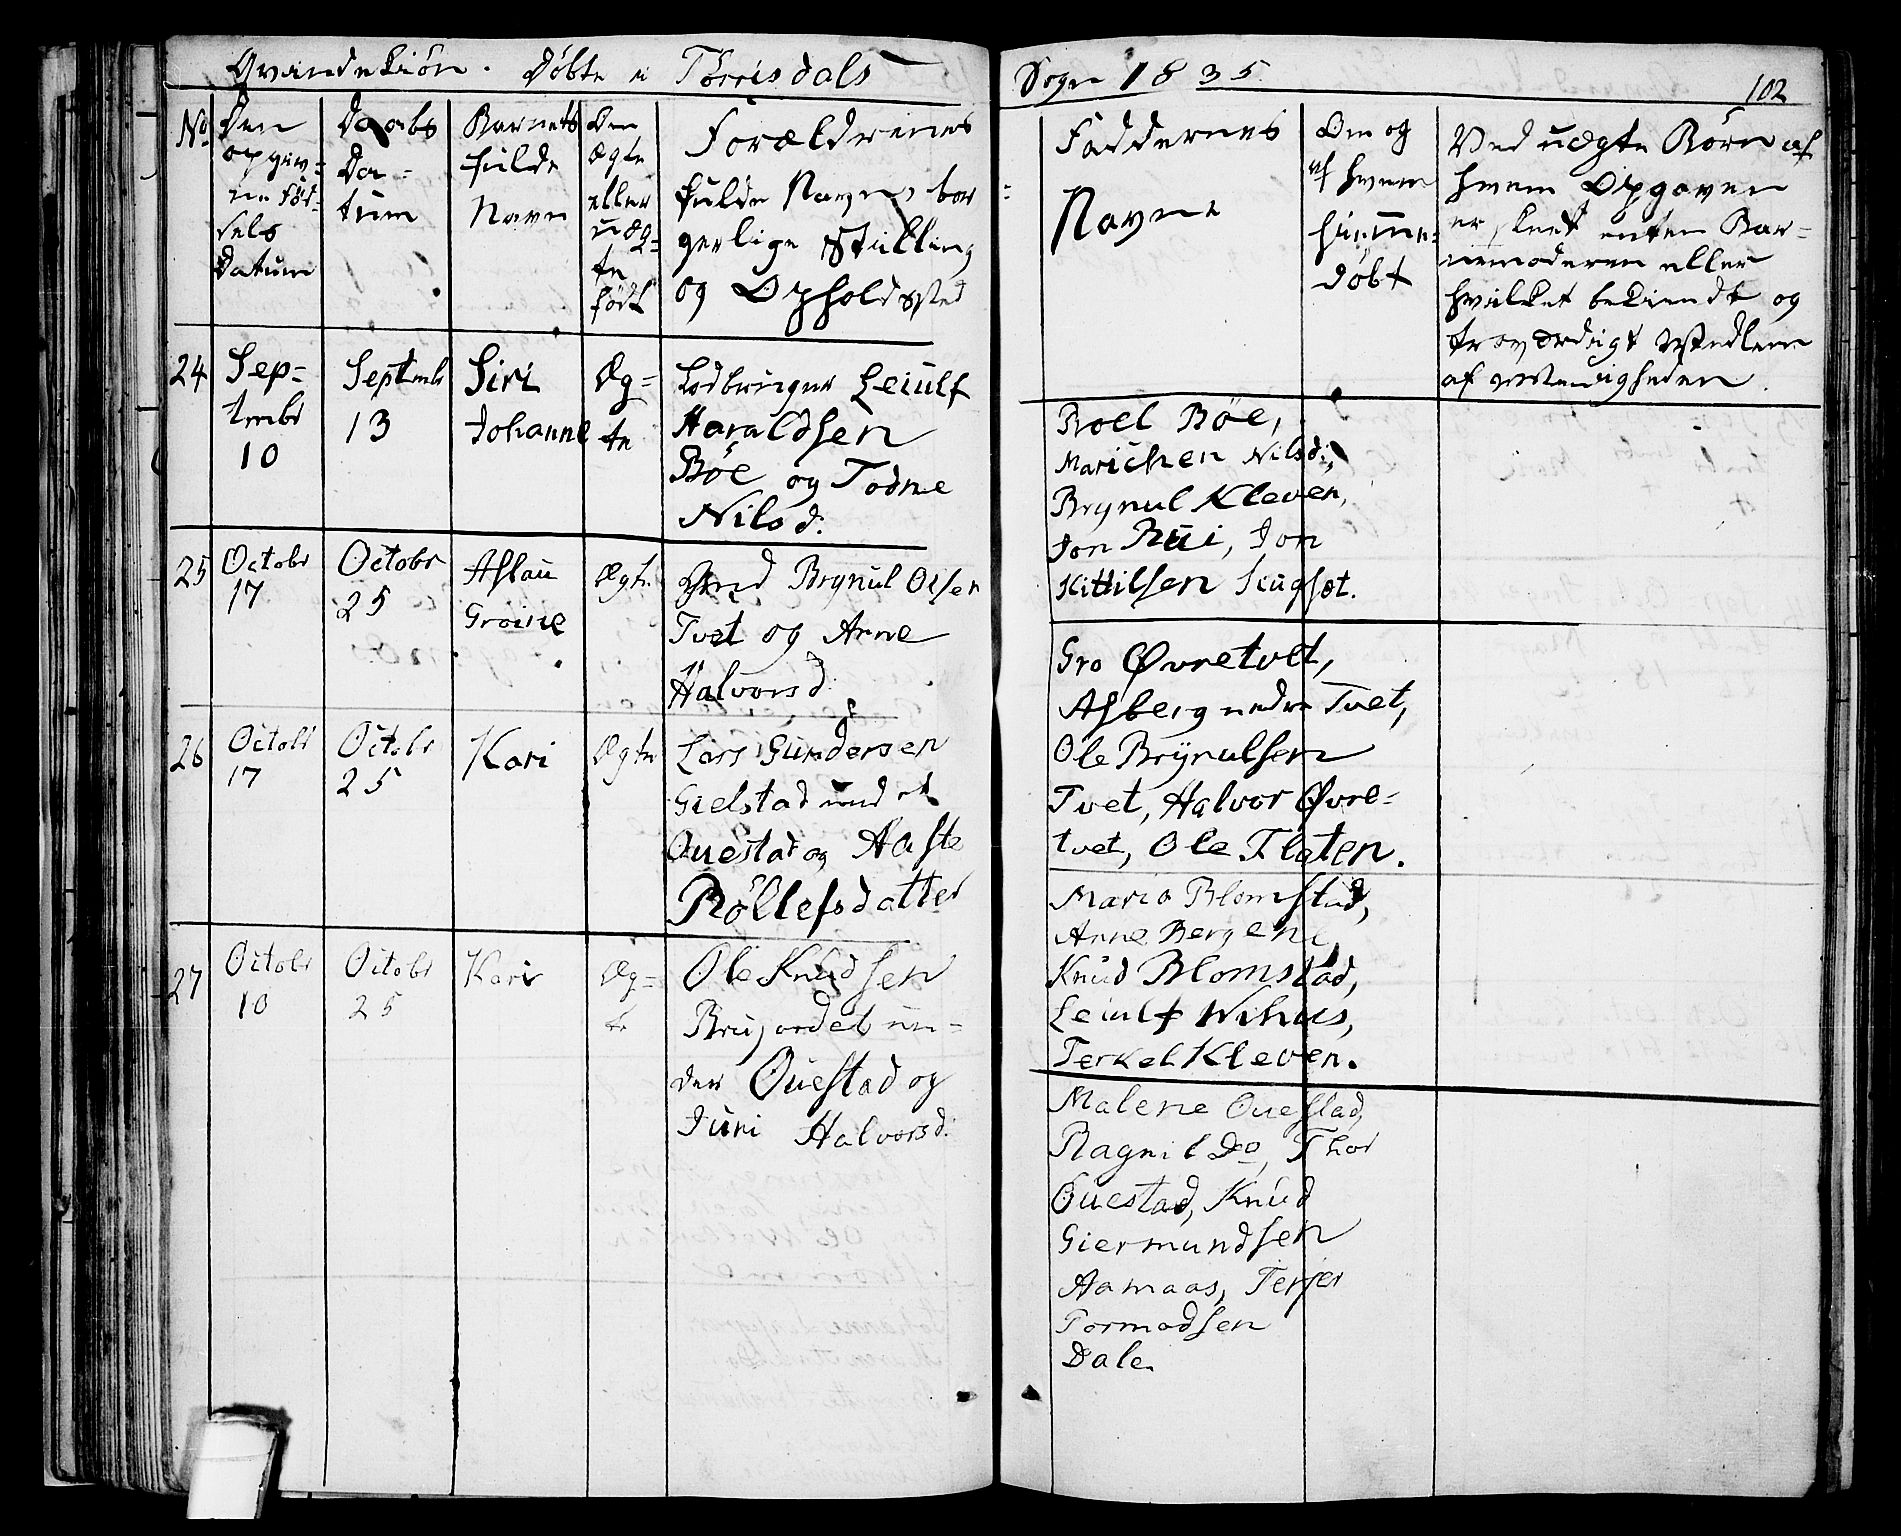 Qvindekiön. Døbte i Tørrisdals
Sogn 1835.
102
No
Den
opgiv=
ne Föd=
sels
Datum
Daabs
Da=
tum
Barnets
fulde
Navn
Om
Ægte
eller
uæg=
te
født
Forældrenes
fulde Navne bor
gerlige Stilling
og Opholdssted
Faddernes
Navne
Om og
af hvem
hiemme=
døbt
Ved uægte Børn af
hvem Opgaven
er skeet enten Bar=
nemoderen eller
hvilket bekiendt og
troværdigt Medlem
af Menigheden.
24
Sep=
tembr
10
Septembr
13
Siri
Johanne
Æg=
te
Leiulf
Haraldsen
Böe og Todne
Nilsd:
Roel Böe,
Marichen Nilsd:,
Brynul Kleven,
Jon Rui, Jon
Kittilsen Skugsæt.
25
Octobr
17
Octobr
25
Aslau
Groine
Ægte
Brynul Olsen
Tvet og Anne
Halvorsd:
Gro Øvretvet,
Asberg nedre Tvet,
Ole Brynulsen
Tvet, Halvor Øvre=
tvet, Ole Flaten.
26
Octobr
17
Octobr
25
Kari
Ægte
Lars Gundersen
Gielstad under
Ouestad og Aaste
Röllefsdatter
Maria Blomstad,
Anne Bergene,
Knud Blomstad,
Leiulf Nihus,
Terkel Kleven.
27
Octobr
10
Octobr
25
Kari
Æg=
te
Ole Knudsen
Brujordet un=
der Ouestad og
Juri Halvorsd:
Malene Ouestad,
Ragnil Do, Thor
Ouestad, Knud
Giermundsen
Aamaas, Terjer
Tormodsen
Dale.